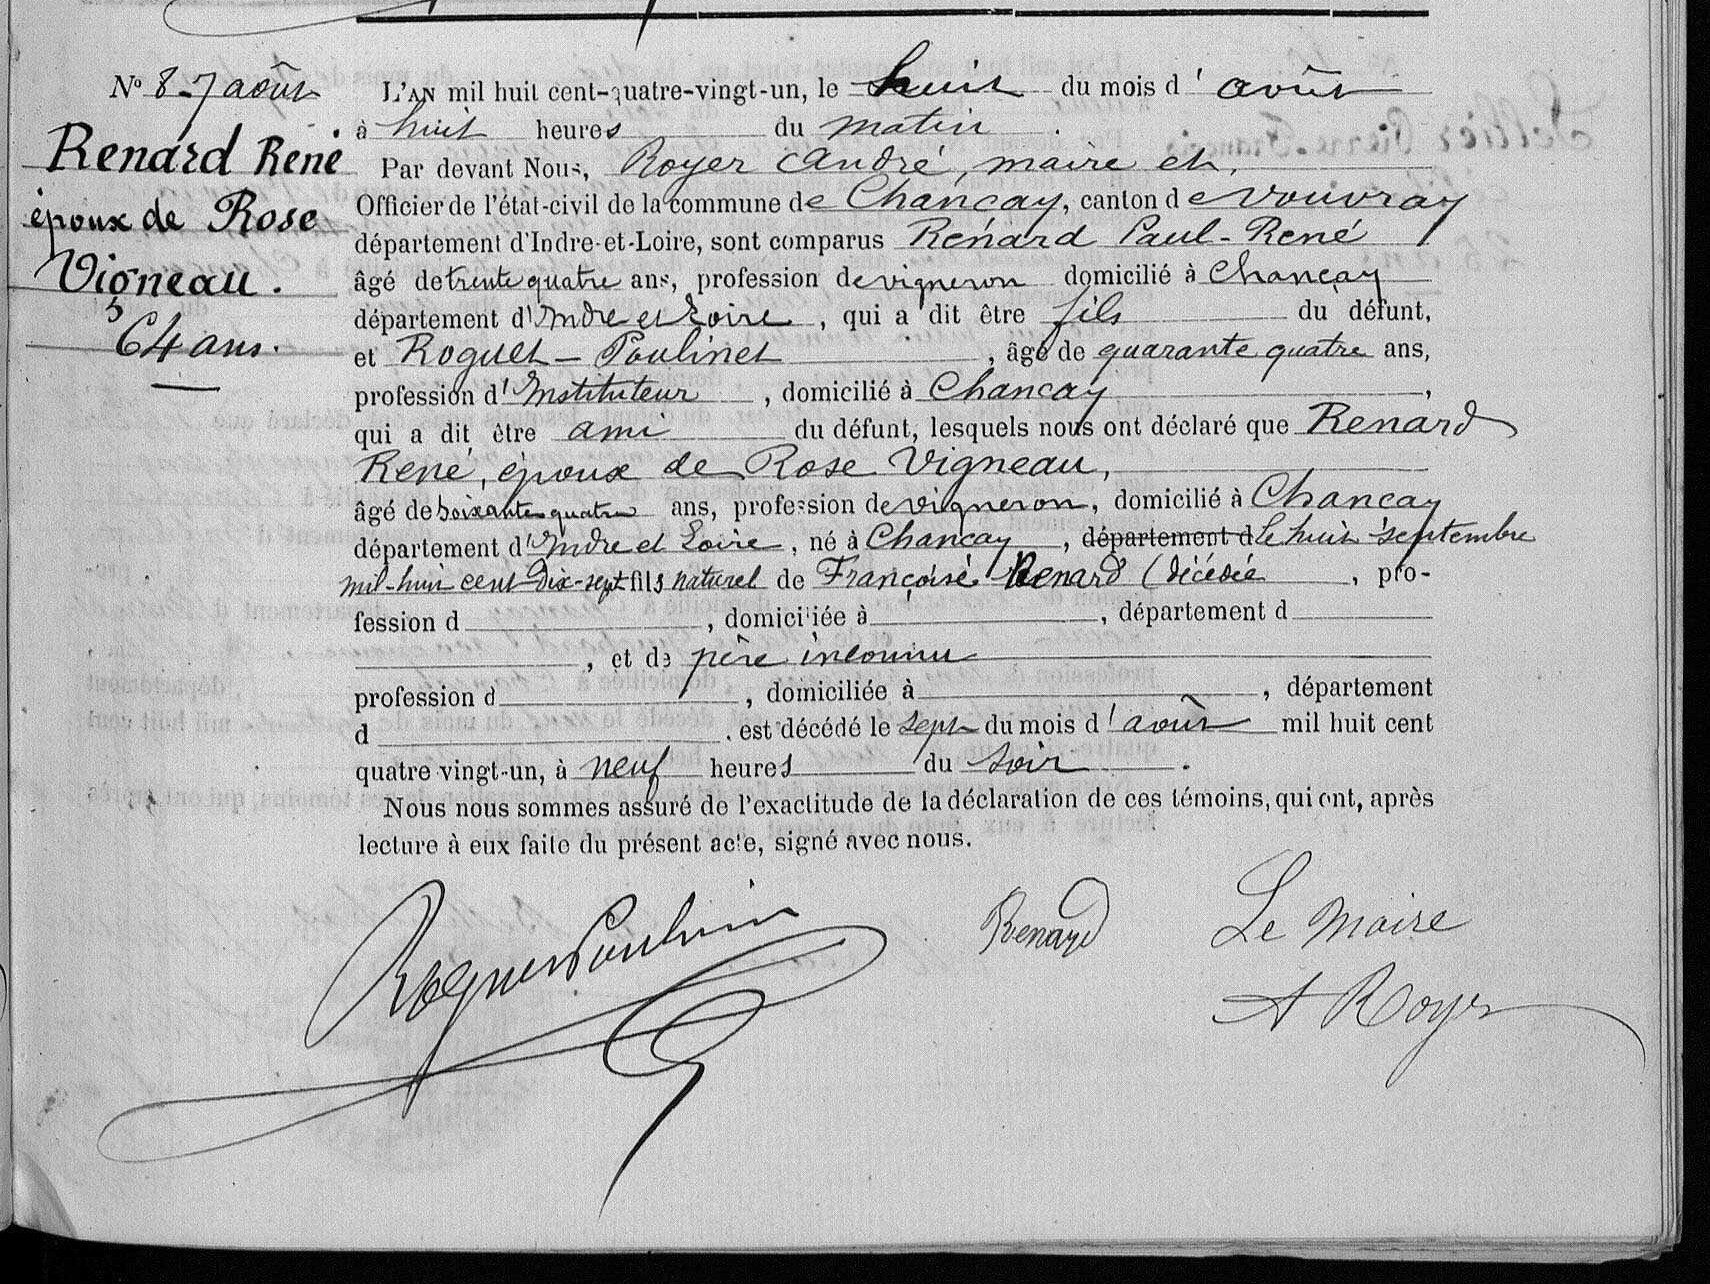 Nº 8 - 7 août
Renard René
époux de Rose
Vigneau.
64 ans.
L'AN mil huit cent-quatre-vingt-un, le huit du mois d'août
à huit heures du matin.
Par devant Nous, Royer André, maire et
Officier de l'état-civil de la commune de Chançay, canton de Vouvray
département d'Indre-et-Loire, sont comparus Renard Paul-René
âgé de trente quatre ans, profession de vigneron domicilié à Chançay
département d'Indre et Loire, qui a dit être fils du défunt,
et Roguet - Poulinet, âgé de quarante quatre ans,
profession d'Instituteur, domicilié à Chançay,
qui a dit être ami du défunt, lesquels nous ont déclaré que Renard
René, époux de Rose Vigneau,
âgé de soixante quatre ans, profession de vigneron, domicilié à Chançay
département d'Indre et Loire, né à Chançay, département d le huit septembre
mil-huit cent dix-sept fils naturel de Françoise Renard (décédée, pro-
fession d , domiciliée à , département d
, et de père inconnu
profession d , domiciliée à , département
d . est décédé le sept du mois d'août mil huit cent
quatre vingt-un, à neuf heures du soir.
Nous nous sommes assuré de l'exactitude de la déclaration de ces témoins, qui ont, après
lecture à eux faite du présent acte, signé avec nous.
Renard
Le Maire
A Royer